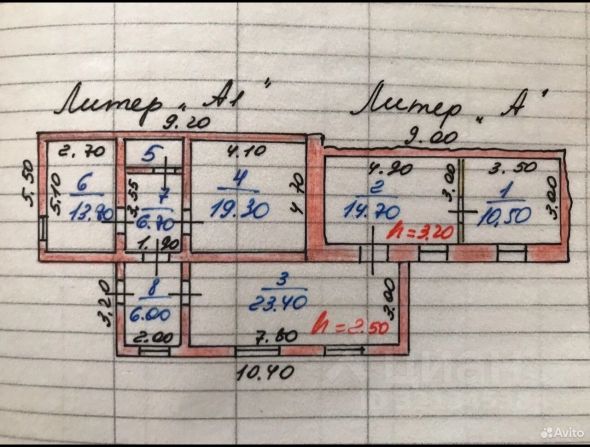 Литер „А1"
Литер „А"
9.20
9.00
2.70
5
4.10
4.90
3.50
5.50
5.10
6
13.70
3.55
7
6.70
1.90
4
19.30
4.70
2
14.70
3.00
h=3.20
1
10.50
3.00
3.20
8
6.00
2.00
3
23.40
7.80
h=2.50
3.00
10.40
Avito